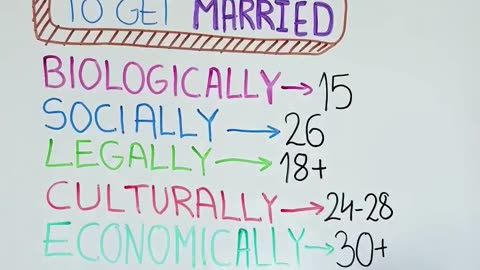 TO GET MARRIED
BIOLOGICALLY → 15
SOCIALLY → 26
LEGALLY → 18+
CULTURALLY → 24-28
ECONOMICALLY → 30+